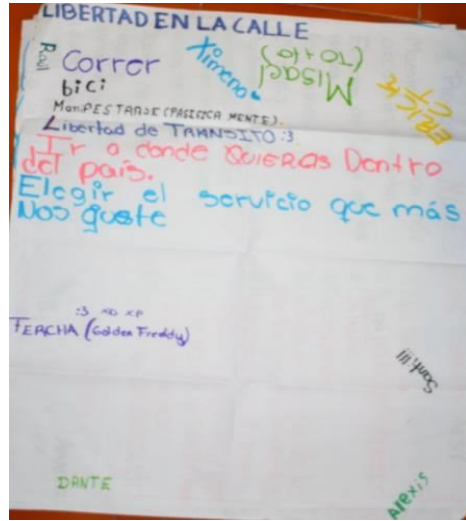 LIBERTAD EN LA CALLE
Raúl
Correr
Ximena
Misael
(TOTTO)
bici
MANIFESTARSE (PASIFICA MENTE).
Libertad de TRANSITO :3
Ir a donde QUIERAS Dentro
del país.
Elegir el servicio que más
Nos guste
:3 XD XP
FERCHA (Golden Freddy)
Santi!!!
DANTE
Alexis